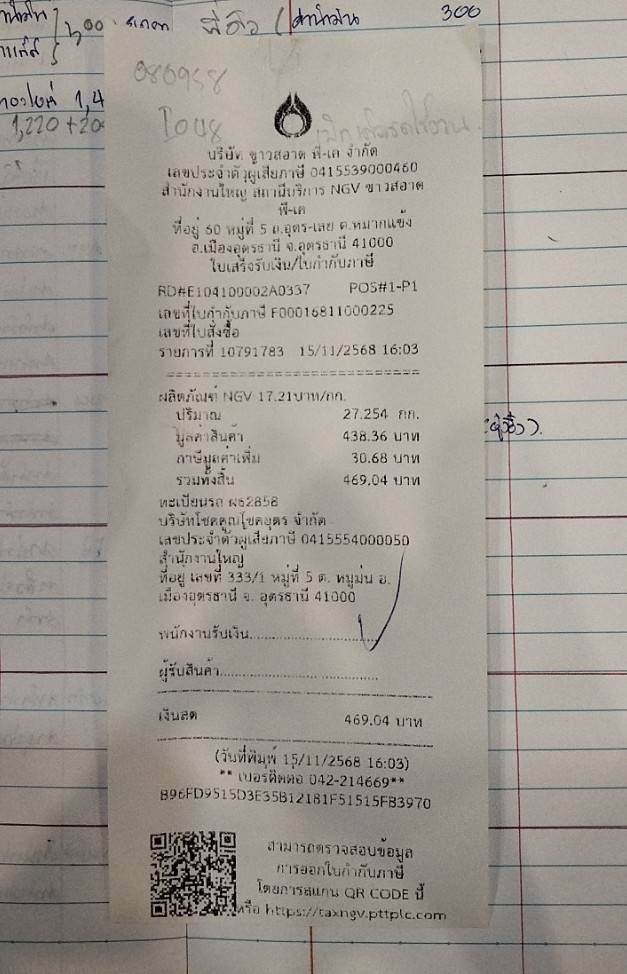 300
080958
บริษัท ขาวสอาด พี-เค จำกัด
เลขประจำตัวผู้เสียภาษี 0415539000460
สำนักงานใหญ่ สถานีบริการ NGV ขาวสอาด
พี-เค
ที่อยู่ 60 หมู่ที่ 5 ถ.อุดร-เลย ต.หมากแข้ง
อ.เมืองอุดรธานี จ.อุดรธานี 41000
ใบเสร็จรับเงิน/ใบกำกับภาษี
RD#E104100002A0337 POS#1-P1
เลขที่ใบกำกับภาษี F00016811000225
เลขที่ใบสั่งซื้อ
รายการที่ 10791783 15/11/2568 16:03
ผลิตภัณฑ์ NGV 17.21บาท/กก.
ปริมาณ 27.254 กก.
มูลค่าสินค้า 438.36 บาท
ภาษีมูลค่าเพิ่ม 30.68 บาท
รวมทั้งสิ้น 469.04 บาท
ทะเบียนรถ ผธ2858
บริษัทโชคคูณโชคอุดร จำกัด
เลขประจำตัวผู้เสียภาษี 0415554000050
สำนักงานใหญ่
ที่อยู่ เลขที่ 333/1 หมู่ที่ 5 ต. หมูม่น อ.
เมืองอุดรธานี จ. อุดรธานี 41000
พนักงานรับเงิน
ผู้รับสินค้า
เงินสด 469.04 บาท
(วันที่พิมพ์ 15/11/2568 16:03)
** เบอร์ติดต่อ 042-214669**
B96FD9515D3E35B12181F51515FB3970
สามารถตรวจสอบข้อมูล
การออกใบกำกับภาษี
โดยการสแกน QR CODE นี้
หรือ https://taxngv.pttplc.com